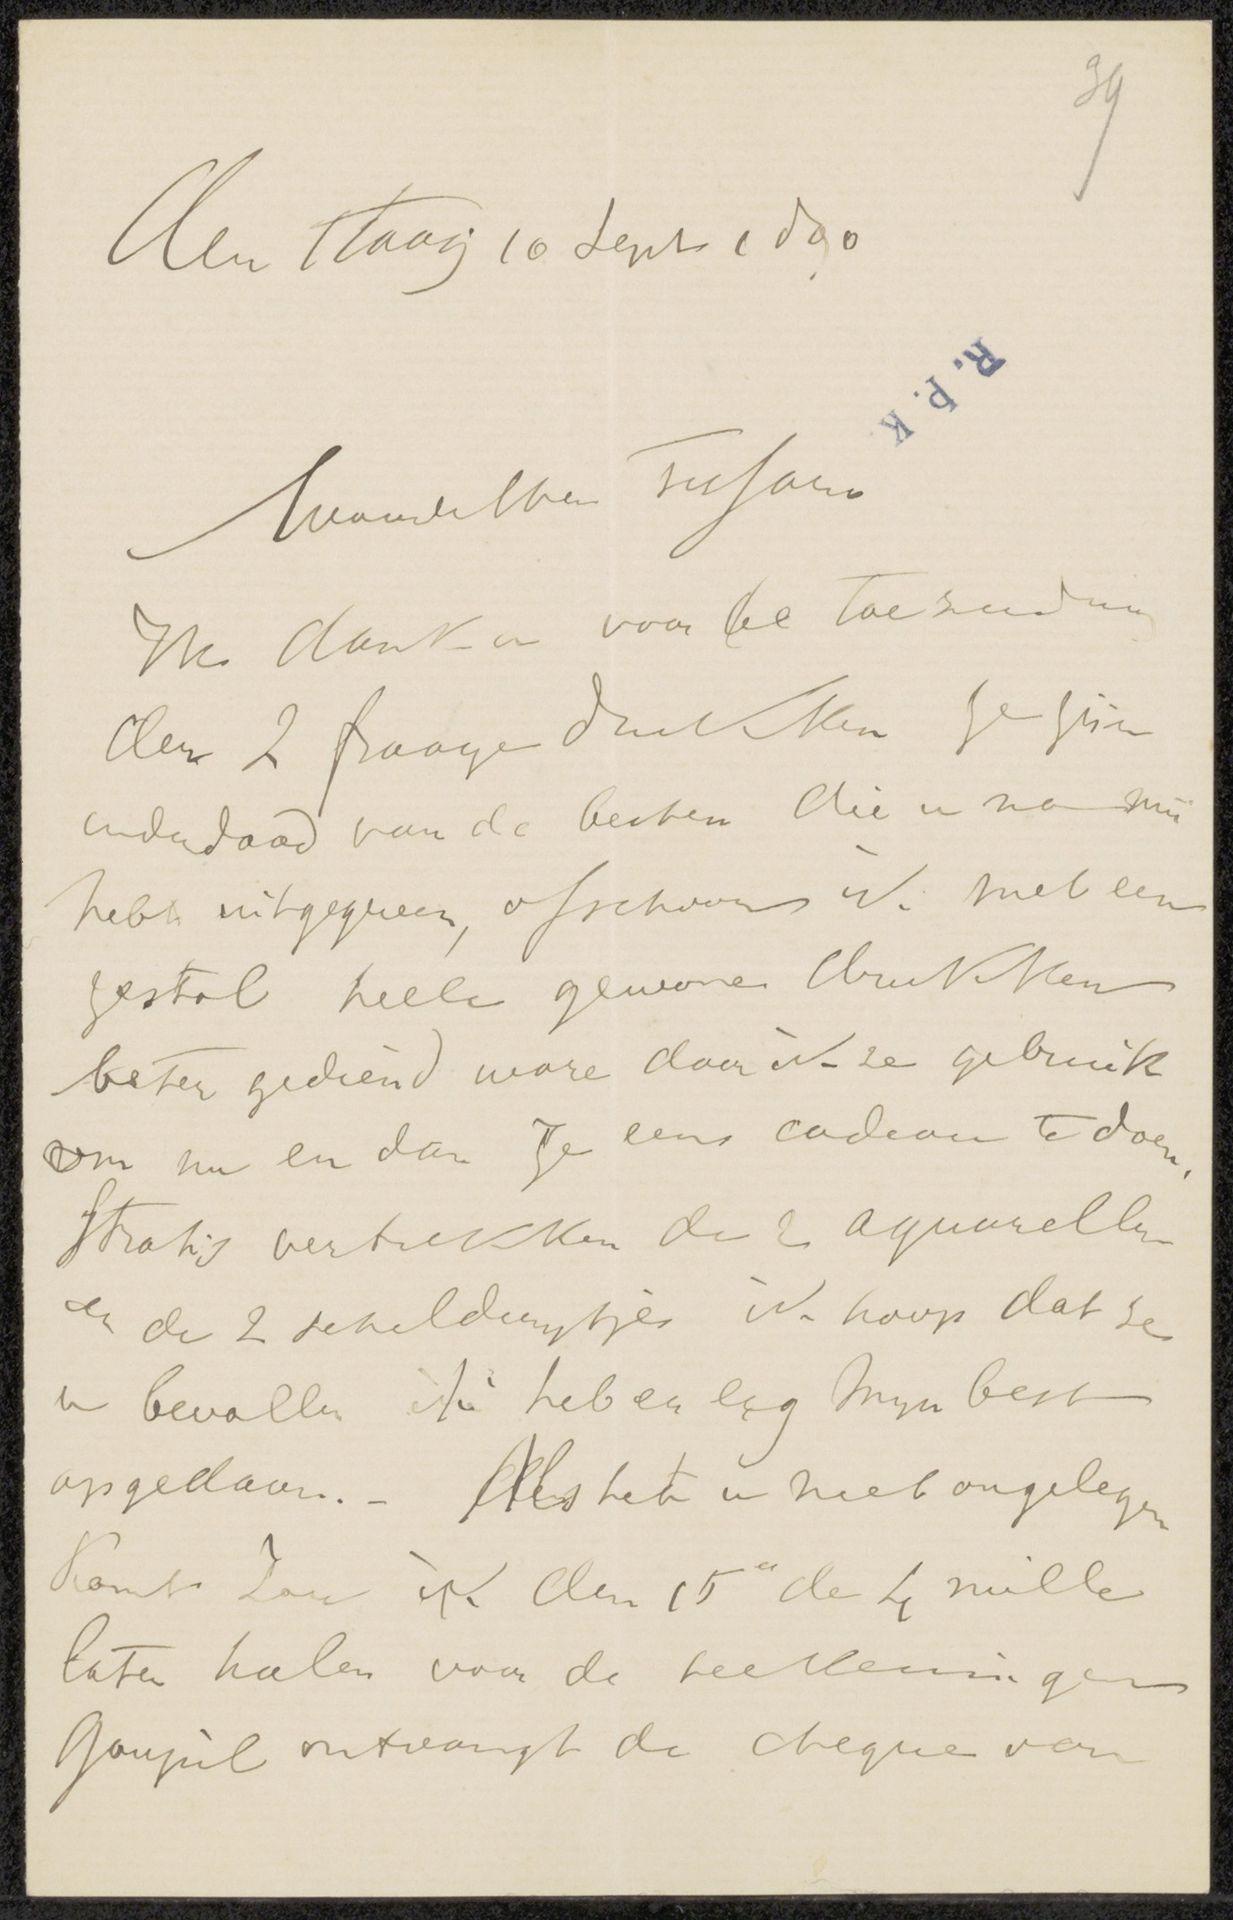 39
Den Haag 10 Sept 1890
R.P.K.
Waarde Heer Tersteeg
Ik dank u voor de toezending
der 2 fraaye drukken ze zijn
inderdaad van de besten die u na mij
hebt uitgegeven, ofschoon ik met een
zestal heele gewone drukken
beter gediend ware daar ik ze gebruik
om nu en dan ze eens cadeau te doen.
Straks vertrekken de 2 aquarellen
en de 2 schilderijtjes ik hoop dat ze
u bevallen ik heb er erg mijn best
op gedaan. - Als het u niet ongelegen
komt zou ik den 15e de 4 mille
laten halen voor de teekeningen
Goupil ontvangt de cheque van